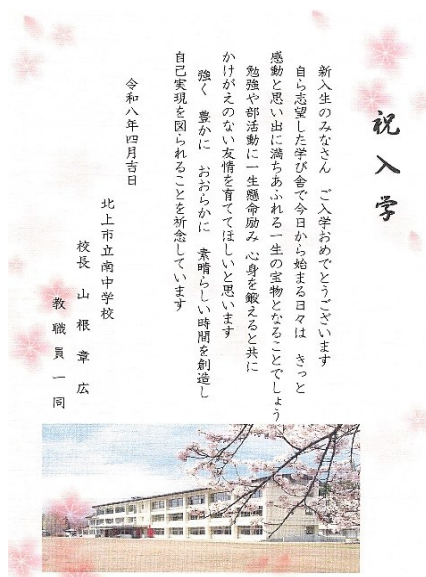 祝入学
新入生のみなさん　ご入学おめでとうございます
自ら志望した学び舎で今日から始まる日々は　きっと
感動と思い出に満ちあふれる一生の宝物となることでしょう
勉強や部活動に一生懸命励み　心身を鍛えると共に
かけがえのない友情を育ててほしいと思います
強く　豊かに　おおらかに　素晴らしい時間を創造し
自己実現を図られることを祈念しています
令和八年四月吉日
北上市立南中学校
校長　山根章広
教職員一同